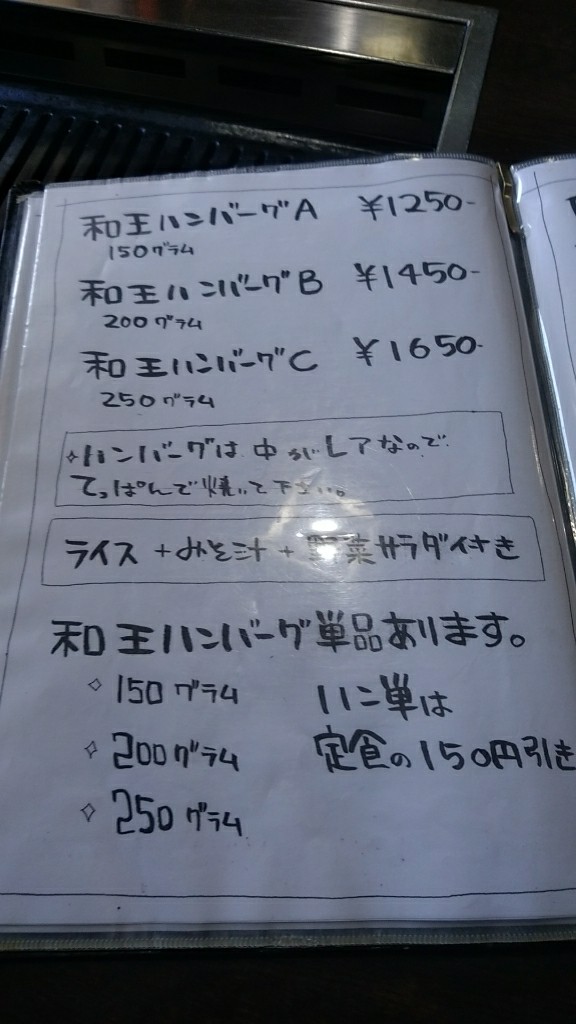 和王ハンバーグA ¥1250-
150グラム
和王ハンバーグB ¥1450-
200グラム
和王ハンバーグC ¥1650-
250グラム
✧ハンバーグは中がレアなので
てっぱんで焼いて下さい。
ライス+みそ汁+野菜サラダ付き
和王ハンバーグ単品あります。
◇150グラム
◇200グラム
◇250グラム
ハン単は
定食の150円引き